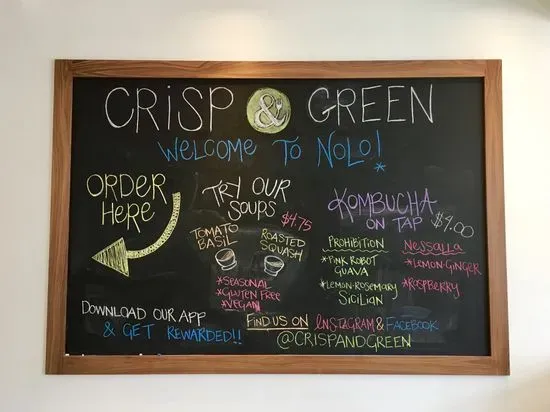 CRiSP & GREEN
WELCOME TO NOLO!
*
ORDER
HERE
TRY OUR
SOUPS
$4.75
TOMATO
BASIL
ROASTED
SQUASH
*SEASONAL
*GLUTEN FREE
*VEGAN
KOMBUCHA
ON TAP $4.00
PROHIBITION
*PINK ROBOT
GUAVA
*LEMON-ROSEMARY
SICILIAN
NESSALLA
*LEMON-GINGER
*RASPBERRY
DOWNLOAD OUR APP
& GET REWARDED!!
FIND US ON INSTAGRAM & FACEBOOK
@CRISPANDGREEN